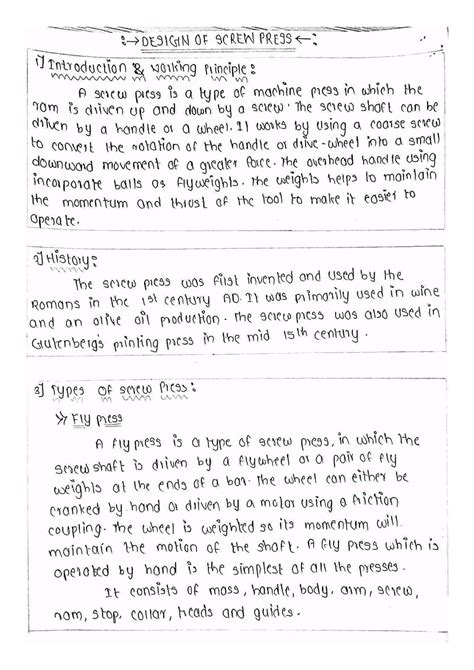 :→ DESIGN OF SCREW PRESS ←:
1) Introduction & Working Principle :
A screw press is a type of machine press in which the
ram is driven up and down by a screw. The screw shaft can be
driven by a handle or a wheel. It works by using a coarse screw
to convert the rotation of the handle or drive-wheel into a small
downward movement of a greater force. The overhead handle using
incorporate balls as flyweights. The weights helps to maintain
the momentum and thrust of the tool to make it easier to
operate.
2) History :
The screw press was first invented and used by the
Romans in the 1st century AD. It was primarily used in wine
and an olive oil production. The screw press was also used in
Gutenberg's printing press in the mid 15th century.
3) Types of screw Press :
>> Fly press
A fly press is a type of screw press, in which the
screw shaft is driven by a flywheel or a pair of fly
weights at the ends of a bar. The wheel can either be
cranked by hand or driven by a motor using a friction
coupling. The wheel is weighted so its momentum will
maintain the motion of the shaft. A fly press which is
operated by hand is the simplest of all the presses.
It consists of mass, handle, body, arm, screw,
ram, stop, collar, heads and guides.